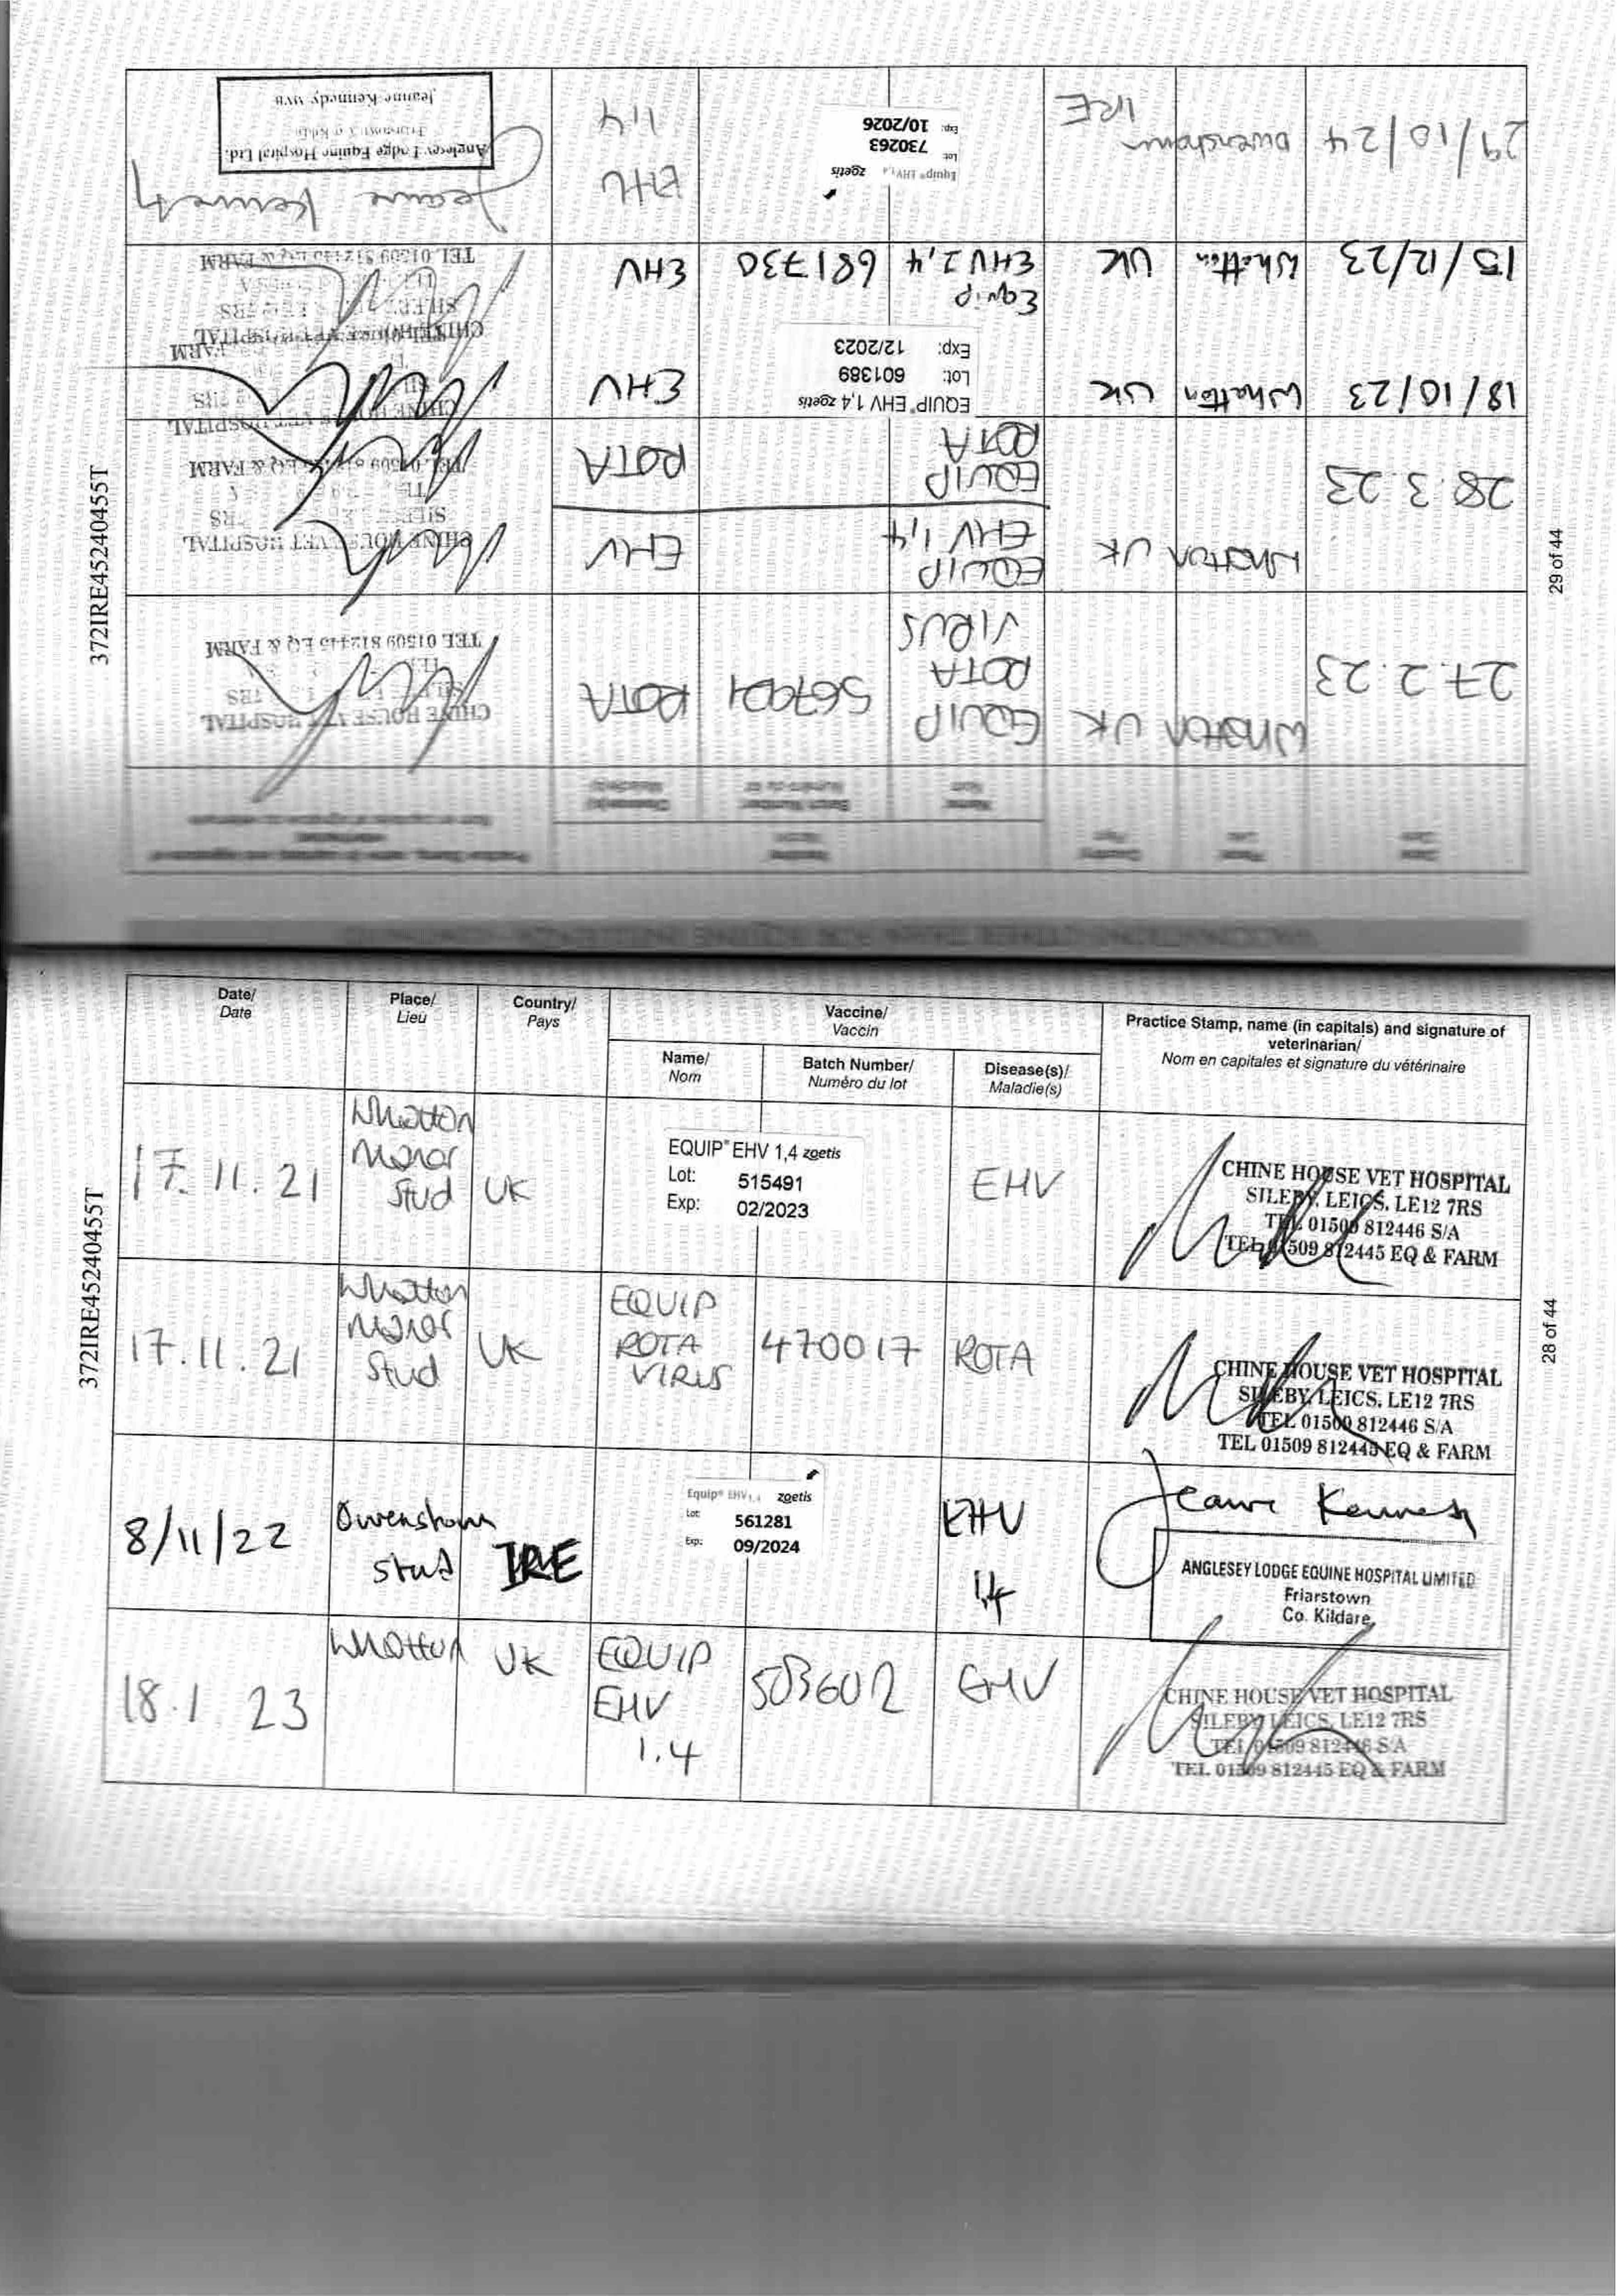 Date/ Place/ Country/ Vaccine/ Practice Stamp, name (in capitals) and signature of
Date Lieu Pays Vaccin veterinarian/
Nom en capitales et signature du vétérinaire
Name/ Batch Number/ Disease(s)/
Nom Numéro du lot Maladie(s)
17.11.21
Whatton
Manor
Stud
UK
EQUIP® EHV 1,4 zoetis
Lot: 515491
Exp: 02/2023
EHV
CHINE HOUSE VET HOSPITAL
SILEBY, LEICS, LE12 7RS
TEL 01509 812446 S/A
TEL 01509 812445 EQ & FARM
17.11.21
Whatton
Manor
Stud
UK
EQUIP
ROTA
VIRUS
470017
ROTA
CHINE HOUSE VET HOSPITAL
SILEBY, LEICS, LE12 7RS
TEL 01509 812446 S/A
TEL 01509 812445 EQ & FARM
8/11/22
Owenstown
Stud
IRE
Equip® EHV 1,4 zoetis
Lot: 561281
Exp: 09/2024
EHV
1,4
Jeanne Kennedy
ANGLESEY LODGE EQUINE HOSPITAL LIMITED
Friarstown
Co. Kildare
18.1.23
Whatton
UK
EQUIP
EHV
1.4
EHV
CHINE HOUSE VET HOSPITAL
SILEBY, LEICS, LE12 7RS
TEL 01509 812446 S/A
TEL 01509 812445 EQ & FARM
372IRE45240455T
28 of 44
27.2.23
Whatton
UK
EQUIP
ROTA
VIRUS
ROTA
CHINE HOUSE VET HOSPITAL
TEL 01509 812445 EQ & FARM
28.3.23
Whatton
UK
EQUIP
EHV 1,4
EHV
CHINE HOUSE VET HOSPITAL
EQUIP
ROTA
ROTA
TEL 01509 812445 EQ & FARM
18/10/23
Whatton
UK
EQUIP® EHV 1,4 zoetis
Lot: 601389
Exp: 12/2023
EHV
CHINE HOUSE VET HOSPITAL
15/12/23
Whatton
UK
Equip
EHV 1,4
681730
EHV
CHINE HOUSE VET HOSPITAL
TEL 01509 812445 EQ & FARM
29/10/24
Owenstown
IRE
Equip® EHV 1,4 zoetis
Lot: 730263
Exp: 10/2026
EHV
1,4
Jeanne Kennedy
Anglesey Lodge Equine Hospital Ltd.
Friarstown, Co. Kildare
Jeanne Kennedy MVB
372IRE45240455T
29 of 44